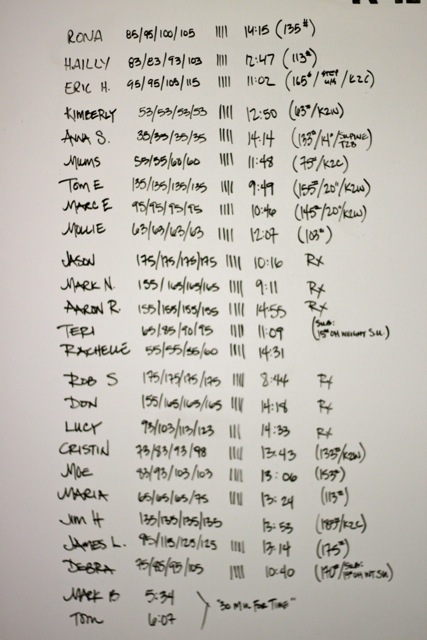 RONA 85/95/100/105 |||| 14:15 (135#)
HAILLY 83/83/93/103 |||| 12:47 (113#)
ERIC H. 95/95/105/115 |||| 11:02 (165#/STEP UPS/K2C)
KIMBERLY 53/53/53/53 |||| 12:50 (63#/K2W)
ANNA S. 35/35/35/35 |||| 14:14 (133#/14"/
MIMMS 55/55/60/60 |||| 11:48 (75#/K2C)
TOM E 135/135/135/135 |||| 9:49 (155#/20"/K2W)
MARC E 95/95/95/95 |||| 10:46 (145#/20"/K2W)
MOLLIE 63/63/63/63 |||| 12:07 (103#)
JASON 175/175/175/175 |||| 10:16 Rx
MARK N. 155/165/165/165 |||| 9:11 Rx
AARON R. 155/155/155/155 |||| 14:55 Rx
TERI 65/85/90/95 |||| 11:09 (SUB: 15# OH WEIGHT S.U.)
RACHELLE 55/55/55/60 |||| 14:31
ROB S 175/175/175/175 |||| 8:44 Rx
DON 155/165/165/165 |||| 14:18 Rx
LUCY 93/103/113/123 |||| 14:33 Rx
CRISTIN 73/83/93/98 |||| 13:43 (133#/K2W)
MOE 83/93/103/103 |||| 13:06 (153#)
MARIA 65/65/65/75 |||| 13:24 (113#)
JIM H 135/135/135/135 13:53 (185#/K2C)
JAMES L. 95/115/125/125 |||| 13:14 (175#)
DEBRA 75/85/95/105 |||| 10:40 (170#/SUB: 15# OH WT S.U.)
MARK B 5:34
TOM 6:07
"30 MU FOR TIME"